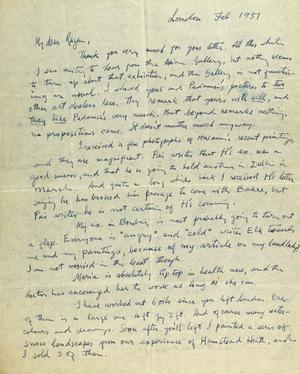 London Feb 1951
My dear Razan,
Thank you very much for your letter. All this while
I am waiting to hear from the Asian Gallery, but nothing seems
to turn up about that exhibition, and the Gallery is not function-
ing as usual. I showed your and Padamsi's pictures to two
other art dealers here. They remark that yours will sell, and
they like Padamsi's very much. But beyond remarks nothing,
no propositions came. It doesn't matter much anyway.
I received a few photographs of Hussain's recent paintings,
and they are magnificent. Pai writes that His ex. was a
good success, and that he is going to hold another in Delhi in
March. And quite a long time back I received His letter
saying he has booked his passage to come with Bakre, but
Pai writes he is not certain of His coming.
My ex. in Bombay is most probably going to turn out
a flop. Everyone is "angry" and "cold" writes Elk towards
me and my paintings, because of my article on my landlady.
I am not worried in the least though.
Maria is absolutely tip top in health now, and the
doctor has encouraged her to work as long as she can.
I have worked out 6 oils since you left London. One
of them is a large one 6ft by 3ft. And of course many water-
colours and drawings. Soon after you'll left I painted a series of
snow landscapes from our experience of Hamstead Heath, and
I sold 3 of them.